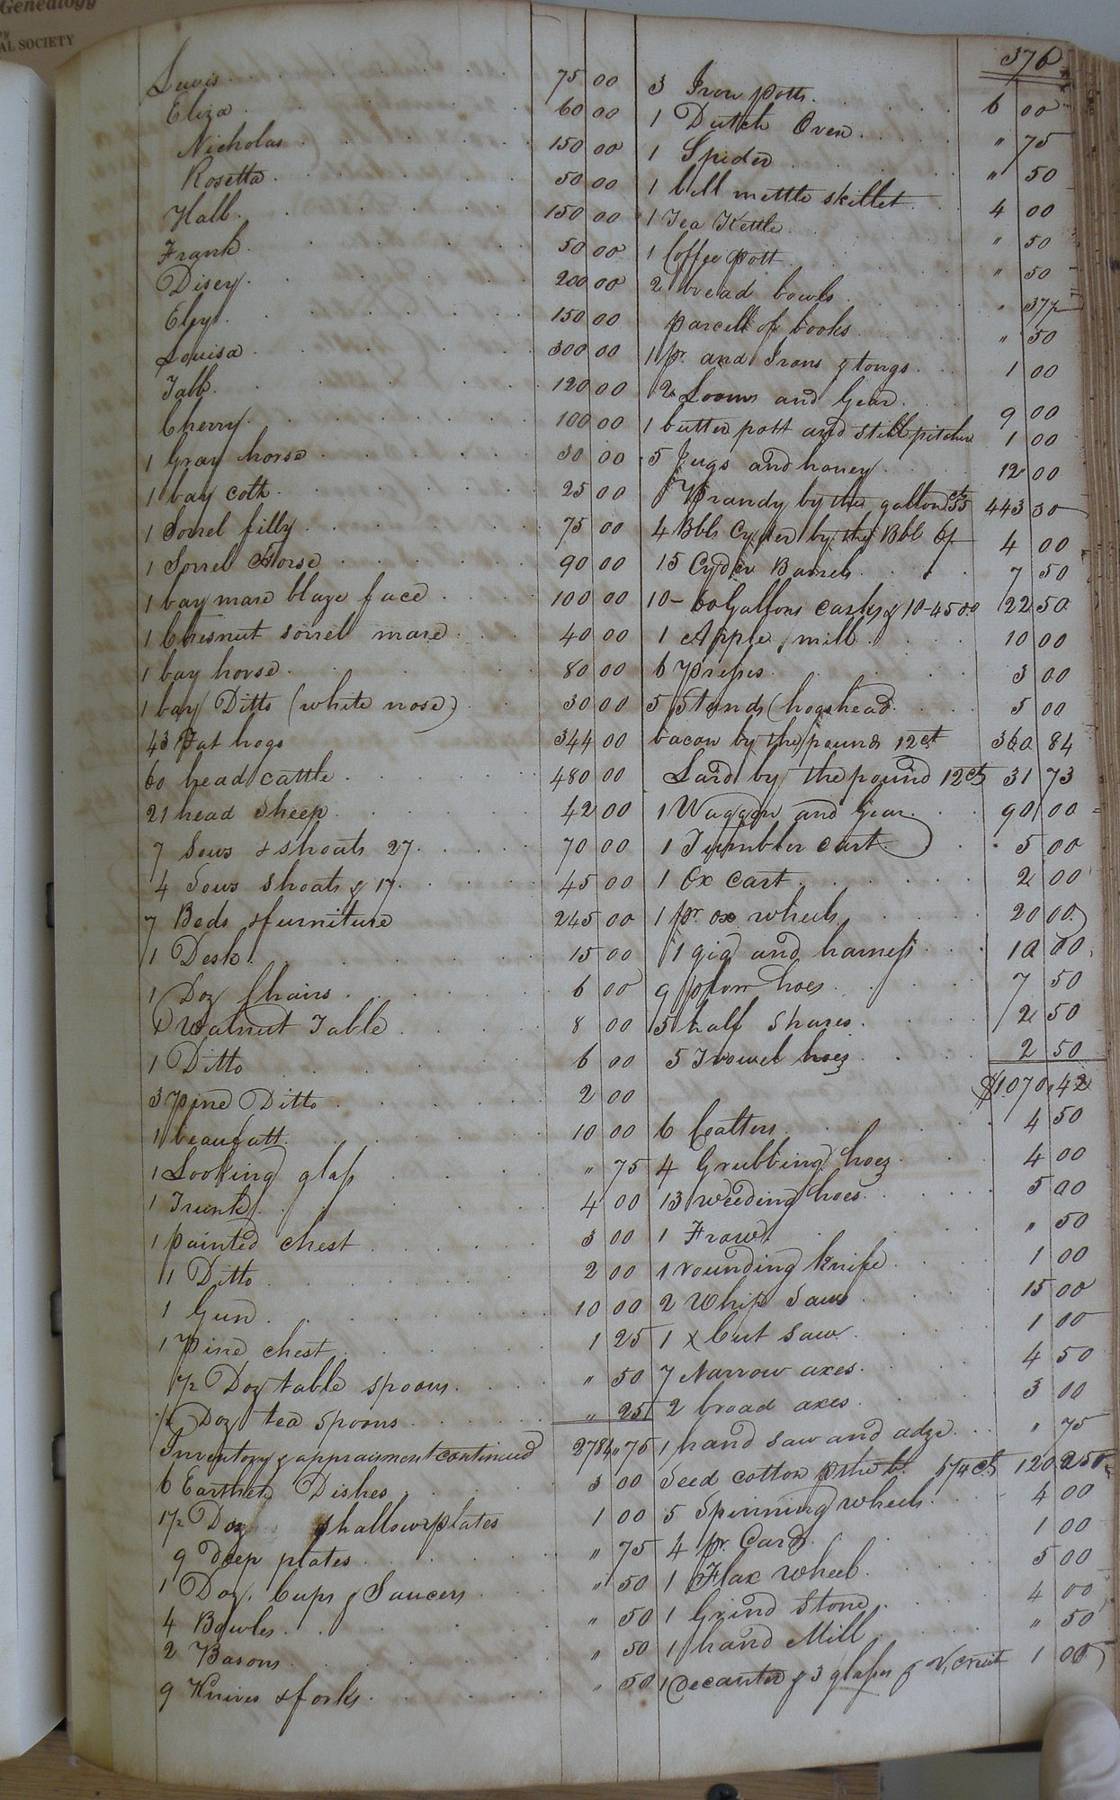 Genealogy
AL SOCIETY
376
Lewis 75 00
Eliza 60 00
Nicholas 150 00
Rosetta 50 00
Hall 150 00
Frank 50 00
Disey 200 00
Eley 150 00
Louisa 300 00
Jack 120 00
Cherry 100 00
1 Gray horse 30 00
1 bay colt 25 00
1 Sorrel filly 75 00
1 Sorrel Horse 90 00
1 bay mare blaze face 100 00
1 Chesnut sorrel mare 40 00
1 bay horse 80 00
1 bay Ditto (white nose) 30 00
43 Fat hogs 344 00
60 head cattle 480 00
21 head sheep 42 00
7 Sows & shoats 27 70 00
4 Sows shoats & 17 45 00
7 Beds & furniture 245 00
1 Desk 15 00
1 Doz Chairs 6 00
1 Walnut Table 8 00
1 Ditto 6 00
3 Pine Ditto 2 00
1 beaufatt 10 00
1 Looking glass " 75
1 Trunk 4 00
1 painted chest 3 00
1 Ditto 2 00
1 Gun 10 00
1 Pine chest 1 25
1/2 Doz table spoons " 50
1/2 Doz tea spoons " 25
Inventory & appraisment continued 2784 " 75
6 Earthen Dishes 3 00
1 1/2 Doz shallow plates 1 00
9 deep plates " 75
1 Doz. Cups & Saucers " 50
4 Bowles " 50
2 Basons " 50
9 Knives & forks " 50
3 Iron potts 6 00
1 Dutch Oven " 75
1 Spider " 50
1 bell mettle skillet 4 00
1 Tea Kettle " 50
1 Coffee pott " 50
2 bread bowls " 37 1/2
parcell of books " 50
1 pr. and Irons & tongs 1 00
2 Looms and Gear 9 00
1 butter pott and still pitcher 1 00
5 Jugs and honey 12 00
Brandy by the gallon 55 cts 443 30
4 Bbls Cyder by the Bbl 6/ 4 00
15 Cyder Barrels 7 50
10 - 60 Gallons casks & 10 - 45 00 22 50
1 Apple mill 10 00
6 Presses 3 00
5 Stands (hogshead 5 00
bacon by the pound 12 ct 360 84
Lard by the pound 12 cts 31 73
1 Waggon and Gear 90 00
1 Tumbler Cart 5 00
1 Ox Cart 2 00
1 pr. ox wheels 20 00
1 gig and harness 10 00
9 plow hoes 7 50
5 half shares 2 50
5 Trowel hoes 2 50
$1070.42
6 Coalters 4 50
4 Grubbing hoes 4 00
13 weeding hoes 5 00
1 Frow " 50
1 rounding knife 1 00
2 Whip Saws 15 00
1 x Cut Saw 1 00
7 Narrow axes 4 50
2 broad axes 3 00
1 hand saw and adze " 75
Seed cotton 120
5 Spinning wheels 4 00
4 pr. Cards 1 00
1 Flax Wheel 5 00
1 Grind Stone 4 00
1 hand Mill " 50
1 Decanter & 3 glasses & 1 00